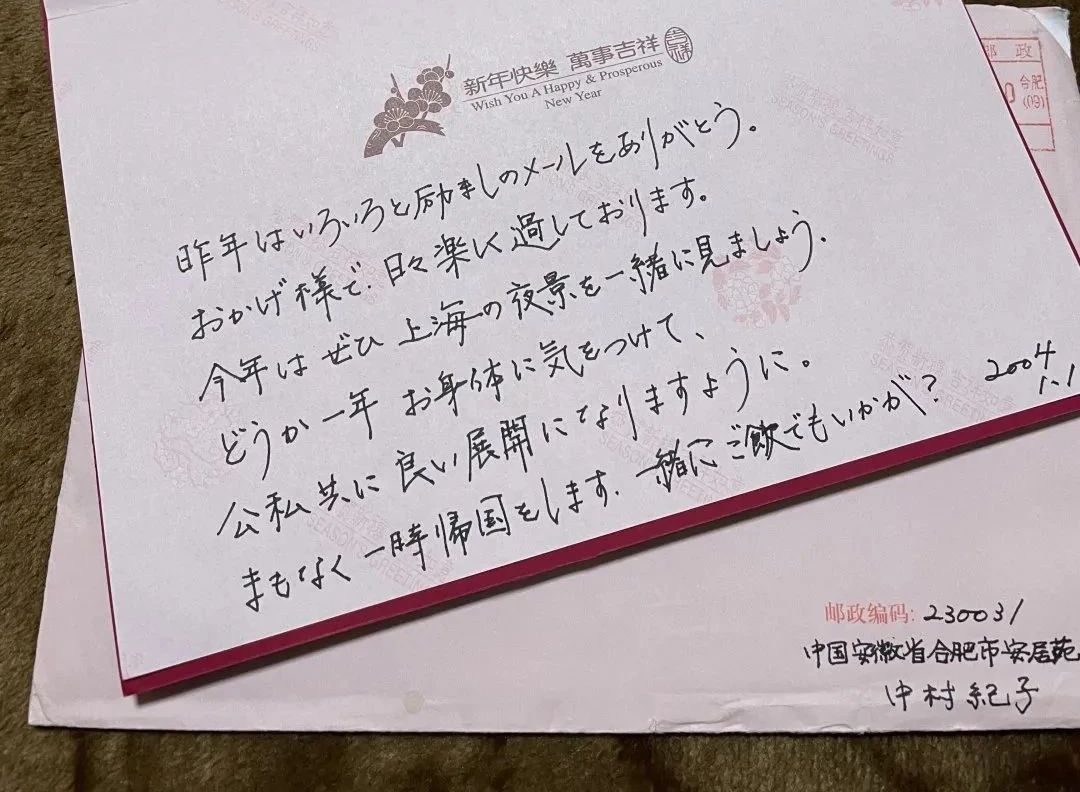 新年快樂 萬事吉祥
吉祥
Wish You A Happy & Prosperous
New Year
昨年はいろいろと励ましのメールをありがとう。
おかげ様で、日々楽しく過しております。
今年はぜひ上海の夜景を一緒に見ましょう.
どうか一年お身体に気をつけて、
公私共に良い展開になりますように。
まもなく一時帰国をします. 一緒にご飯でもいかが?
2004
1.1
恭賀新禧 吉祥如意
SEASON'S GREETINGS
邮政
合肥
(09)
邮政编码: 230031
中国安徽省合肥市安居苑
中村紀子